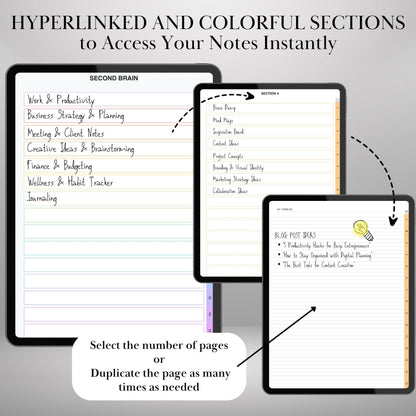 HYPERLINKED AND COLORFUL SECTIONS
to Access Your Notes Instantly
SECOND BRAIN
Work & Productivity
Business Strategy & Planning
Meeting & Client Notes
Creative Ideas & Brainstorming
Finance & Budgeting
Wellness & Habit Tracker
Journaling
SECTION 4
Brain Dump
Mind Maps
Inspiration Board
Content Ideas
Project Concepts
Branding & Visual Identity
Marketing Strategy Ideas
Collaboration Ideas
BLOG POST IDEAS
• "5 Productivity Hacks for Busy Entrepreneurs"
• "How to Stay Organized with Digital Planning"
• "The Best Tools for Content Creation"
Select the number of pages
or
Duplicate the page as many
times as needed